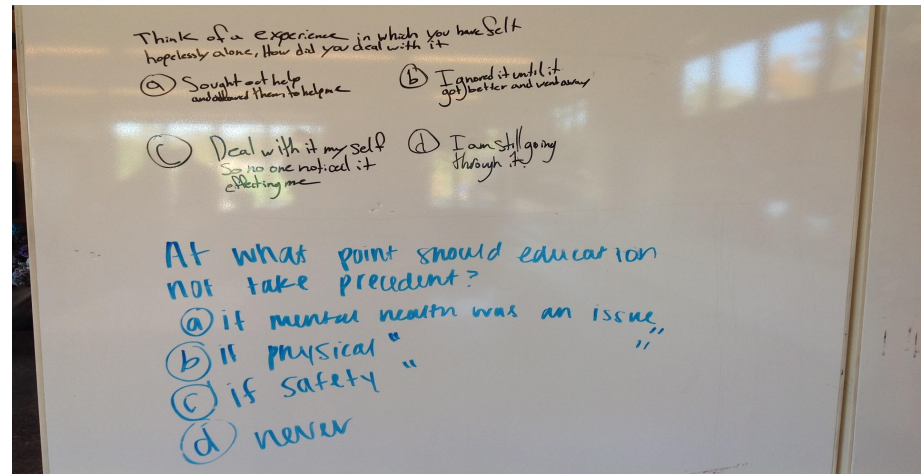 Think of a experience in which you have felt
hopelessly alone, How did you deal with it
ⓐ Sought out help
and allowed them to help me
ⓑ Ignored it until it
got better and went away
ⓒ Deal with it my self
So no one noticed it
effecting me
ⓓ I am still going
through it.
At what point should education
not take precedent?
ⓐ if mental health was an issue
ⓑ if physical " "
ⓒ if safety " "
ⓓ never